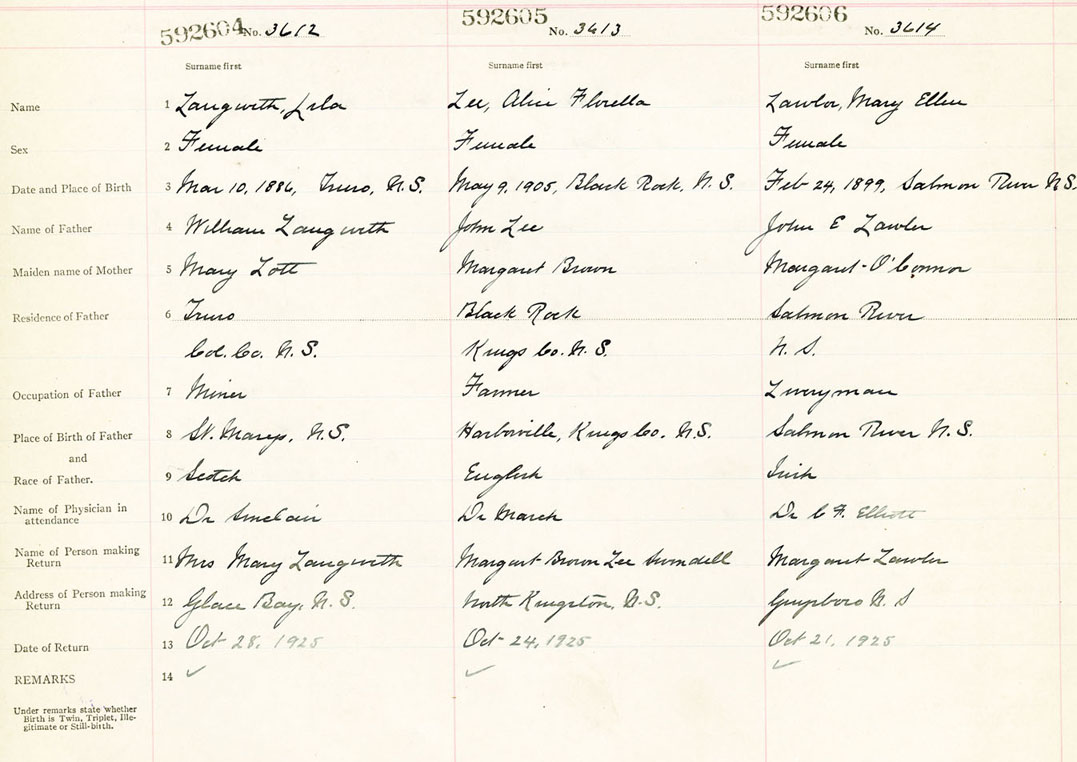 592604 No. 3612 592605 No. 3613 592606 No. 3614
Surname first Surname first Surname first
Name 1 Langwith, Lila Lee, Alice Florella Lawlor, Mary Ellen
Sex 2 Female Female Female
Date and Place of Birth 3 Mar 10, 1886, Truro, N.S. May 9, 1905, Black Rock, N.S. Feb 24, 1899, Salmon River N.S.
Name of Father 4 William Langwith John Lee John E Lawlor
Maiden name of Mother 5 Mary Lott Margaret Brown Margaret O'Connor
Residence of Father 6 Truro Black Rock Salmon River
Col. Co. N.S. Kings Co. N.S. N.S.
Occupation of Father 7 Miner Farmer Liveryman
Place of Birth of Father 8 St. Marys, N.S. Harborville, Kings Co. N.S. Salmon River N.S.
and
Race of Father. 9 Scotch English Irish
Name of Physician in attendance 10 Dr Sinclair Dr March Dr C F. Elliott
Name of Person making Return 11 Mrs Mary Langwith Margaret Brown Lee Margaret Lawlor
Address of Person making Return 12 Glace Bay, N.S. North Kingston, N.S. Guysboro N.S
Date of Return 13 Oct 28, 1925 Oct 24, 1925 Oct 21, 1925
REMARKS 14 ✓ ✓ ✓
Under remarks state whether
Birth is Twin, Triplet, Ille-
gitimate or Still-birth.